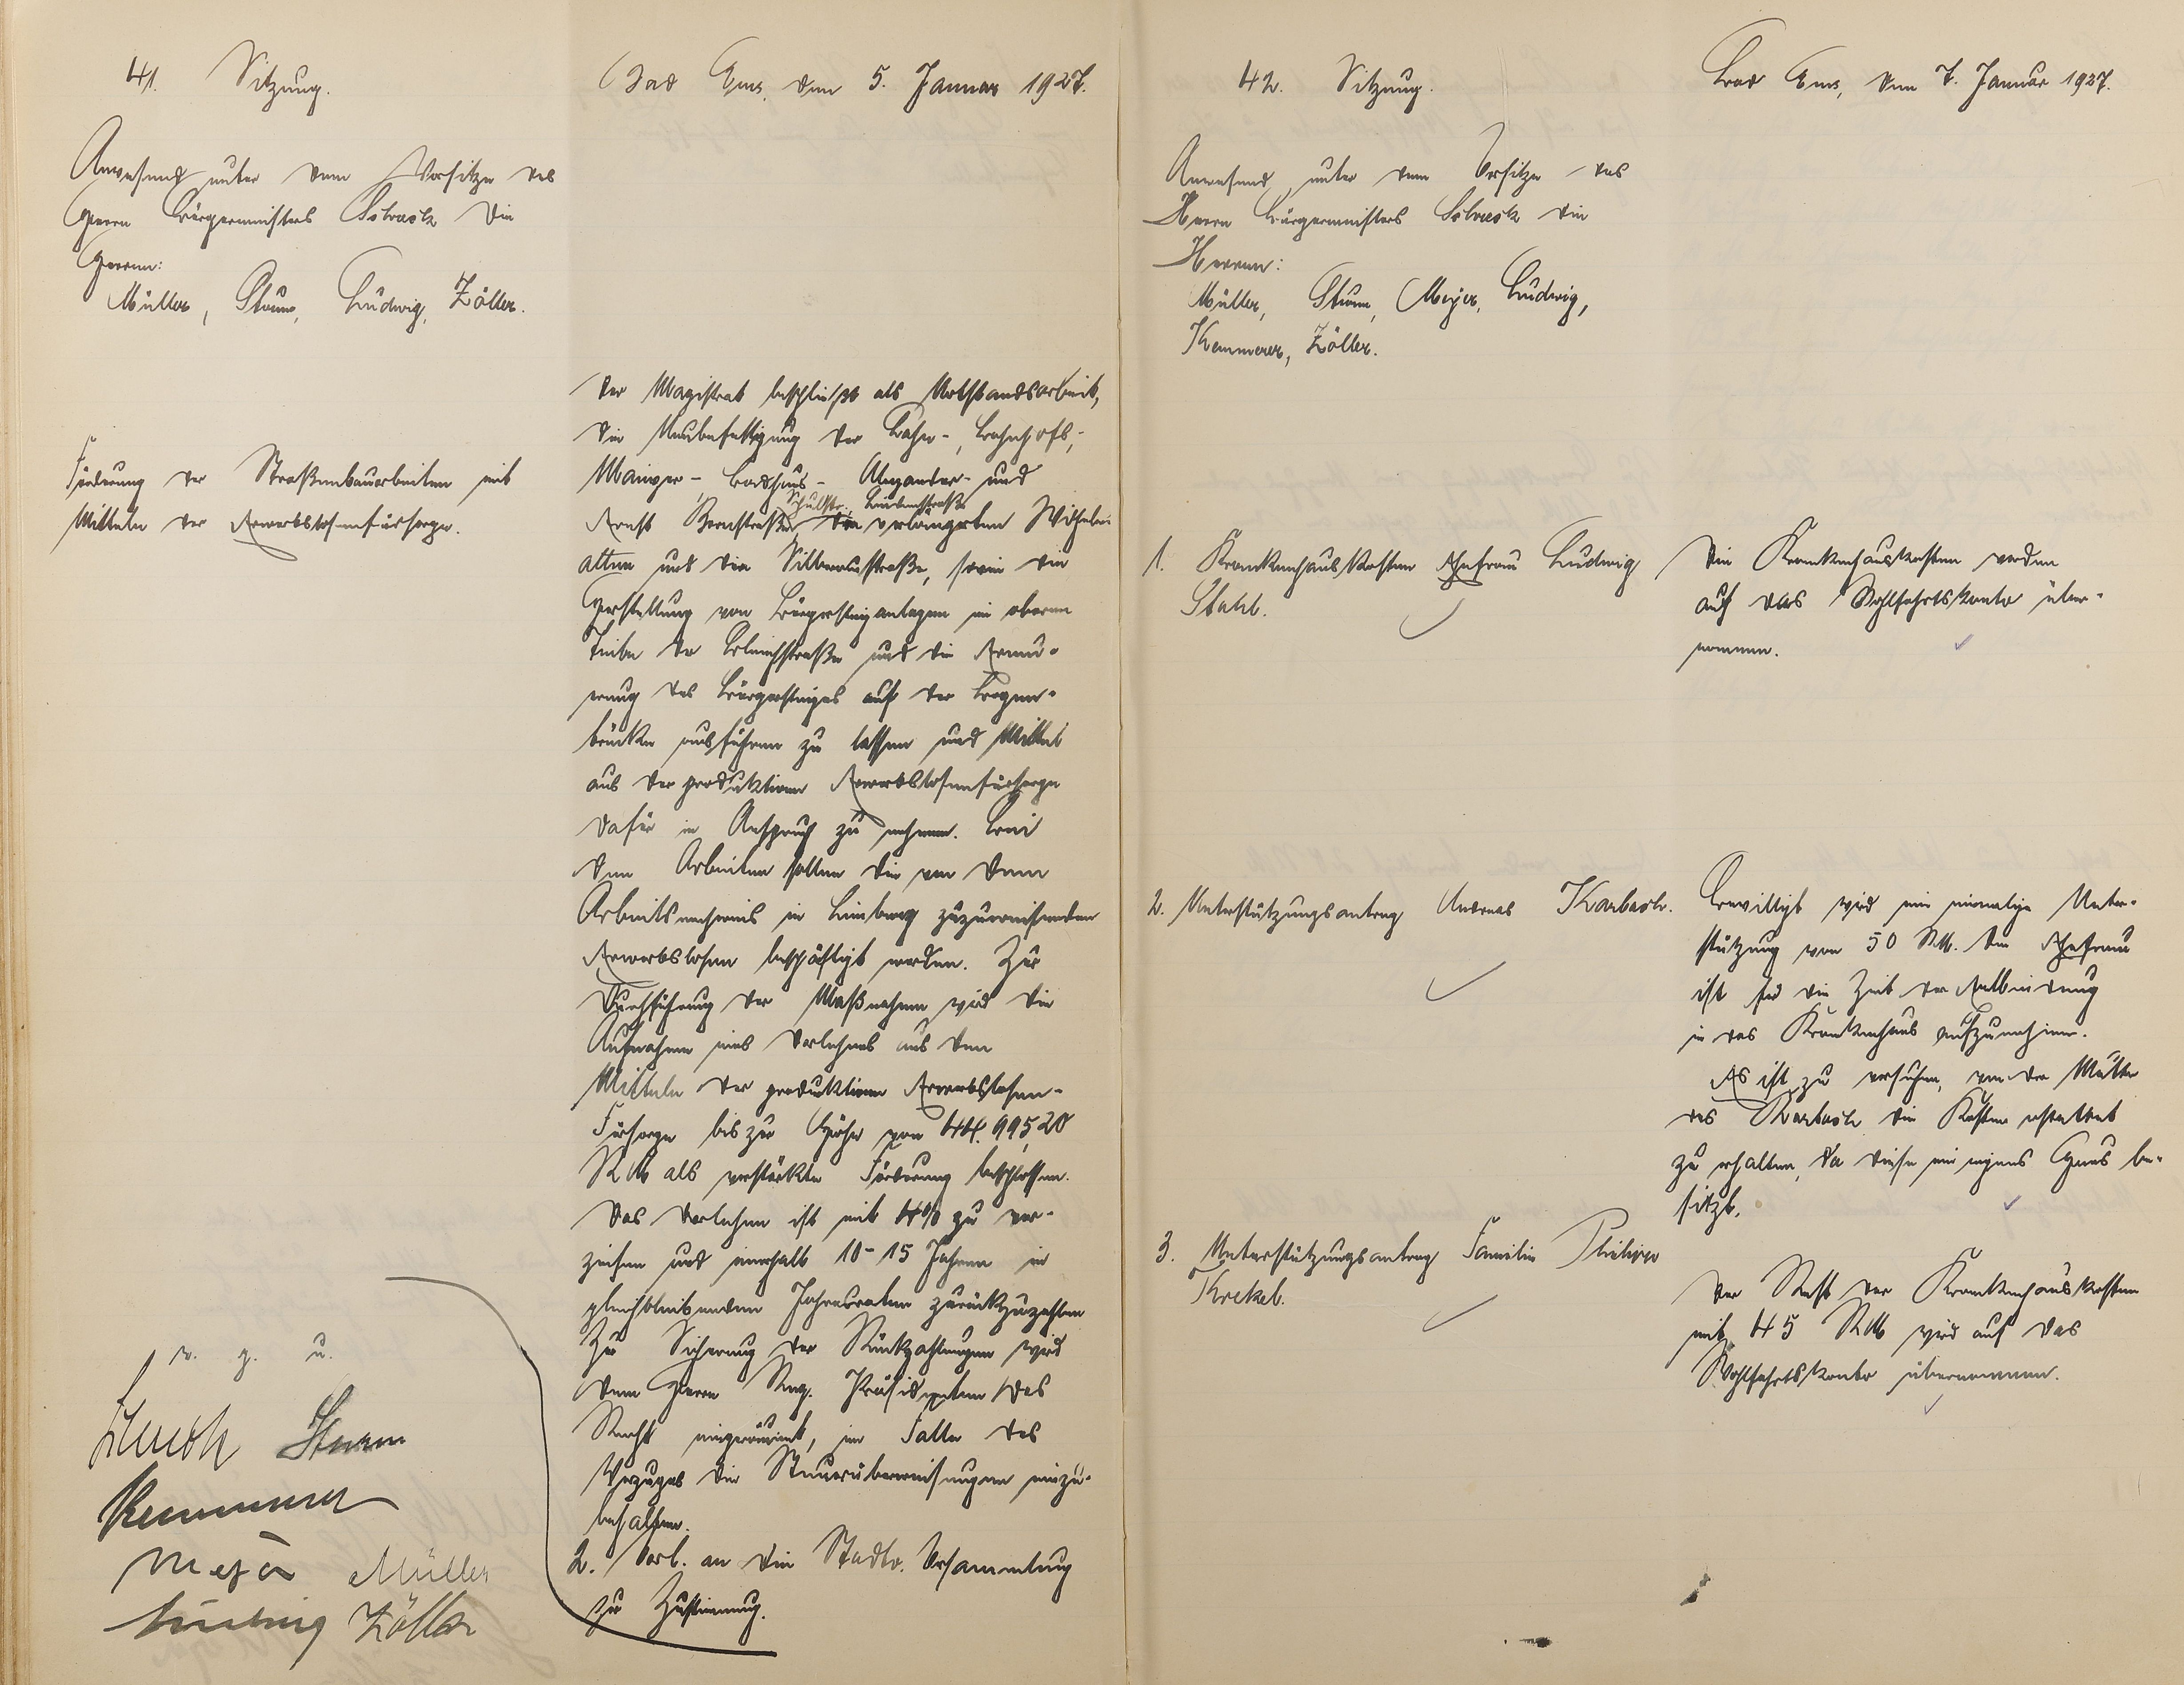 41. Sitzung.
Bad Ems, den 5. Januar 1927.
Anwesend unter dem Vorsitze des
Herrn Bürgermeisters Schrock die
Herren:
Müller, Sturm, Ludwig, Zöller.
Förderung der Straßenbauarbeiten mit
Mitteln der Erwerbslosenfürsorge.
Der Magistrat beschließt als Notstandsarbeit,
die Neubefestigung der Lahn-, Bahnhofs-,
Mainzer- Badhaus- Alexander- und
Schulstr. Lindenstraße
Ernst Bornstraße, der verlängerten Wilhelms
allee und die Silberaustraße, sowie die
Herstellung von Bürgersteiganlagen im oberen
Teile der Coblenzstraße und die Erneu-
erung des Bürgersteiges auf der Bogen-
brücke ausführen zu lassen und Mittel
aus der produktiven Erwerbslosenfürsorge
dafür in Anspruch zu nehmen. Bei
den Arbeiten sollen die von dem
Arbeitsnachweis in Limburg zuzuweisenden
Erwerbslosen beschäftigt werden. Zur
Durchführung der Maßnahme wird die
Aufnahme eines Darlehns aus den
Mitteln der produktiven Erwerbslosen-
Fürsorge bis zur Höhe von 44.995,20
RM als verstärkte Förderung beschlossen.
Das Darlehen ist mit 4% zu ver-
zinsen und innerhalb 10-15 Jahren in
gleichbleibenden Jahresraten zurückzuzahlen
Zur Sicherung der Rückzahlungen wird
dem Herrn Reg. Präsidenten das
Recht eingeräumt, im Falle des
Verzuges die Steuerüberweisungen einzu-
behalten.
2. Vorl. an die Stadtv. Versammlung
zur Zustimmung.
v. g. u.
Schrock Sturm
Kemmerer
Meyer Müller
Ludwig Zöller
42. Sitzung.
Bad Ems, den 7. Januar 1927.
Anwesend unter dem Vorsitze des
Herrn Bürgermeisters Schrock die
Herren:
Müller, Sturm, Meyer, Ludwig,
Kemmerer, Zöller.
1. Krankenhauskosten Ehefrau Ludwig
Stahl.
Die Krankenhauskosten werden
auf das Wohlfahrtskonto über-
nommen.
2. Unterstützungsantrag Andreas Karbach.
Bewilligt wird eine einmalige Unter-
stützung von 50 RM. Die Ehefrau
ist für die Zeit der Entbindung
in das Krankenhaus aufzunehmen.
Es ist zu versuchen, von der Mutter
des Karbach die Kosten erstattet
zu erhalten, da diese ein eigenes Haus be-
sitzt.
3. Unterstützungsantrag Familie Philipp
Krekel.
Der Rest der Krankenhauskosten
mit 45 RM wird auf das
Wohlfahrtskonto übernommen.